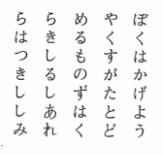 ぼくはかげよう
やくすがたとど
めるものずはく
らきしるしあれ
らはつきししみ